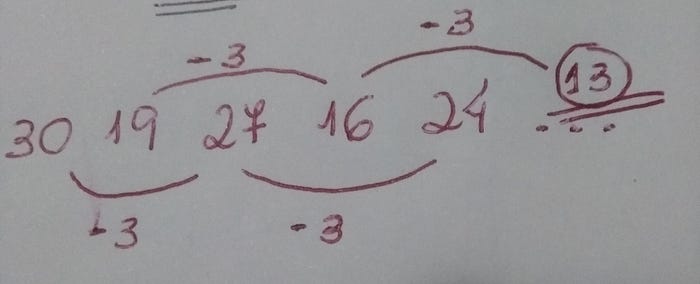 -3 -3
30 19 27 16 24 13
-3 -3